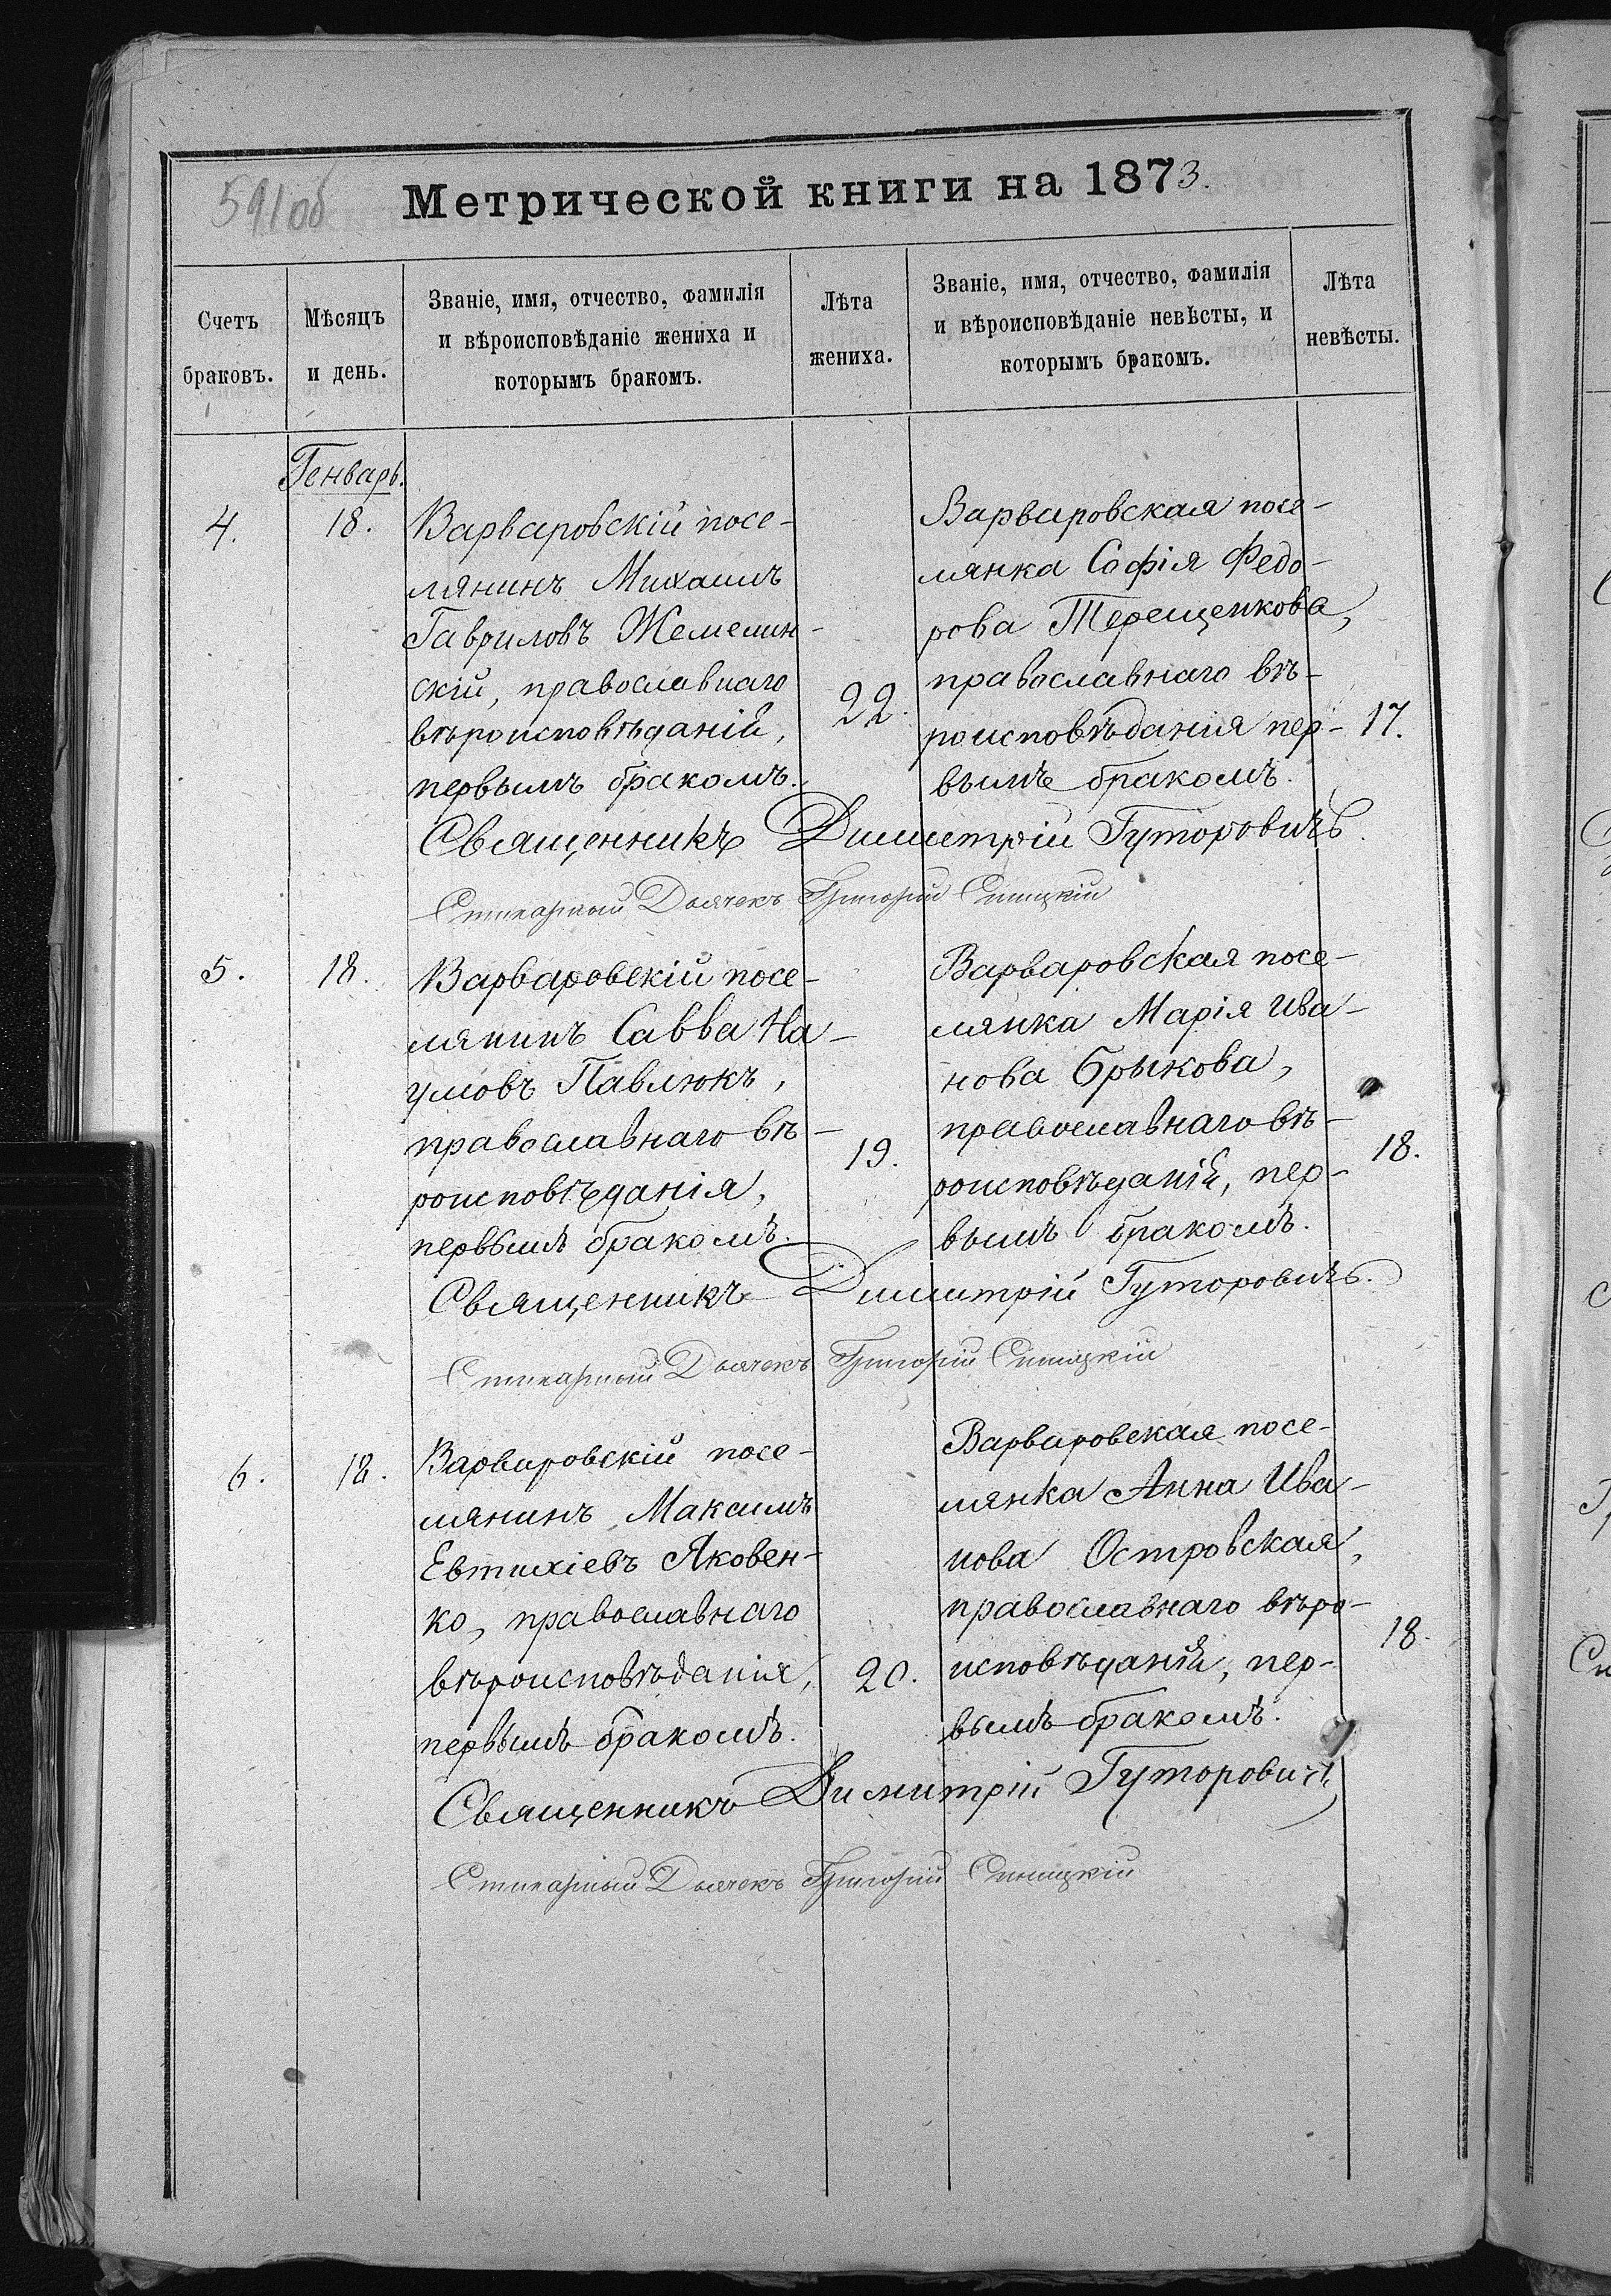 591об
Метрической книги на 1873.
Счетъ браковъ.
Мѣсяцъ и день.
Званіе, имя, отчество, фамилія
и вѣроисповѣданіе жениха и
которымъ бракомъ.
Лѣта
жениха.
Званіе, имя, отчество, фамилія
и вѣроисповѣданіе невѣсты, и
которымъ бракомъ.
Лѣта
невѣсты.
Генварь.
4.
18.
Варваровскій посе-
лянинъ Михаилъ
Гавриловъ Жемелин-
скій, православнаго
вѣроисповѣданій,
первымъ бракомъ.
22.
Варваровская посе-
лянка Софія Федо-
рова Терещенкова,
православнаго вѣ-
роисповѣданія пер-
вымъ бракомъ.
17.
Священникъ Димитрій Гуторовичъ.
Стихарный Дьячекъ Григорій Синицкій
5.
18.
Варваровскій посе-
лянинъ Савва На-
умовъ Павлюкъ,
православнаго вѣ-
роисповѣданія,
первымъ бракомъ.
19.
Варваровская посе-
лянка Марія Ива-
нова Брыкова,
православнаго вѣ-
роисповѣданій, пер-
вымъ бракомъ.
18.
Священникъ Димитрій Гуторовичъ.
Стихарный Дьячекъ Григорій Синицкій
6.
18.
Варваровскій посе-
лянинъ Максимъ
Евтихіевъ Яковен-
ко, православнаго
вѣроисповѣданія,
первымъ бракомъ.
20.
Варваровская посе-
лянка Анна Ива-
нова Островская,
православнаго вѣро-
исповѣданій, пер-
вымъ бракомъ.
18.
Священникъ Димитрій Гуторовичъ
Стихарный Дьячекъ Григорій Синицкій